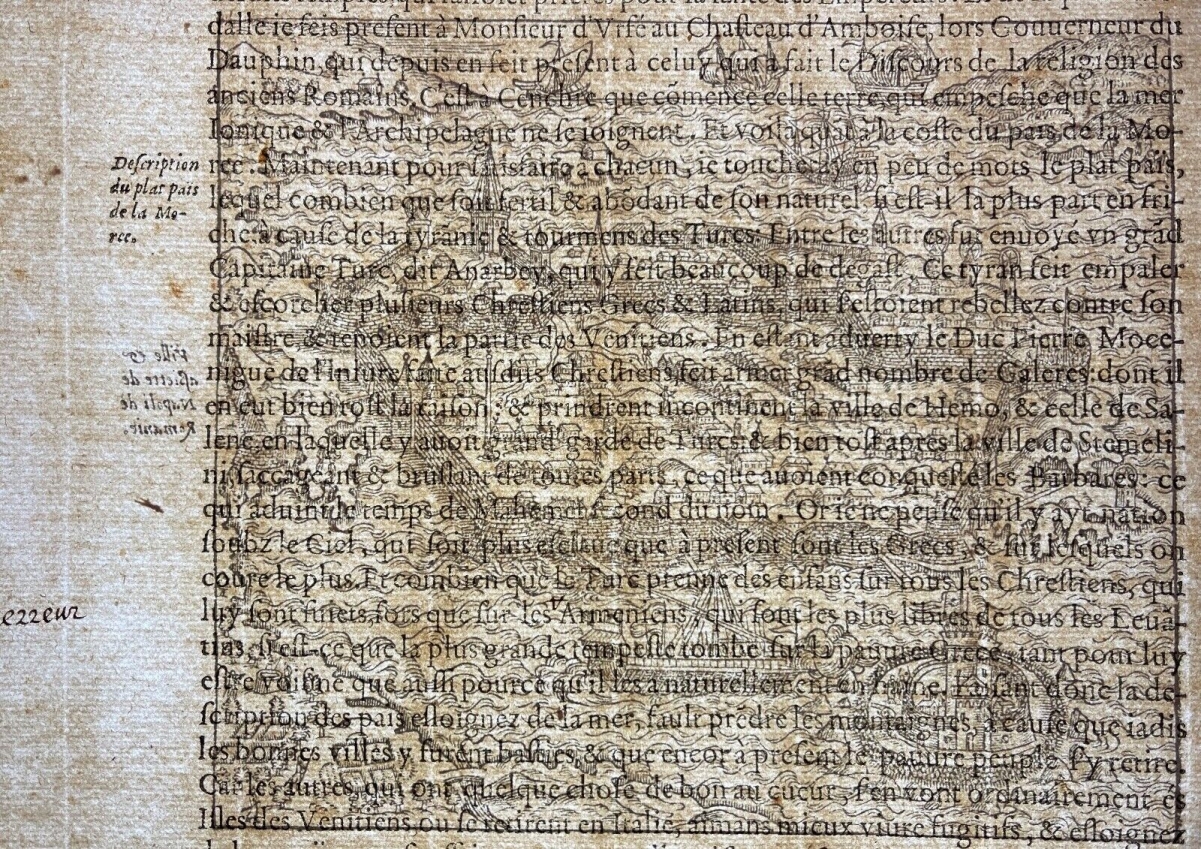 dalle ie feis present à Monsieur d'Vrfé au Chasteau d'Amboise, lors Gouuerneur du
Dauphin, qui depuis en feit present à celuy qui a fait le Discours de la religion des
anciens Romains. C'est à Cenchre que cõmence celle terre, qui empesche que la mer
Ionique & l'Archipelague ne se ioignent. Et voila quãt à la coste du païs de la Mo-
Description
du plat païs
de la Mo-
ree.
ree. Maintenant pour satisfaire à chacun, ie toucheray en peu de mots le plat païs,
lequel combien que soit fertil & abõdant de son naturel, si est-il la plus part en fri-
che à cause de la tyrãnie & tourmens des Turcs. Entre les autres fut enuoyé vn grãd
Capitaine Turc, dit Anarbey, qui y feit beaucoup de degast. Ce tyran feit empaler
& escorcher plusieurs Chrestiens Grecs & Latins, qui s'estoient rebellez contre son
maistre, & tenoient la partie des Venitiens. En estant aduerty le Duc Pierre Moce-
nigue de l'iniure faite ausdits Chrestiens, feit armer grãd nombre de Galeres: dont il
Ville &
assiette de
Napoli de
Romanie.
en eut bien tost la raison: & prindrent incontinent la ville de Hemo, & celle de Sa-
lene, en laquelle y auoit grand' garde de Turcs: & bien tost apres la ville de Stomeli-
ni, saccageant & bruslant de toutes parts, ce que auoient conquesté les Barbares: ce
qui aduint le temps de Mahemet second du nom. Or ie ne pense qu'il y ayt nation
soubz le Ciel, qui soit plus esclaue que à present sont les Grecs, & sur lesquels on
coure le plus. Et combien que le Turc prenne des enfans sur tous les Chrestiens, qui
erreur
luy sont suiets, fors que sur les Armeniens, qui sont les plus libres de tous les Leuã-
tins, si est-ce que la plus grande tempeste tombe sur la pauure Grece, tant pour luy
estre voisine que aussi pource qu'il les a naturellement en haine. Faisant donc la de-
scription des païs esloignez de la mer, fault prẽdre les montaignes, à cause que iadis
les bonnes villes y furent basties, & que encor à present le pauure peuple s'y retire.
Car les autres, qui ont quelque chose de bon au cueur, s'en vont ordinairement és
Isles des Venitiens ou se retirent en Italie, aimans mieux viure fugitifs, & esloignez